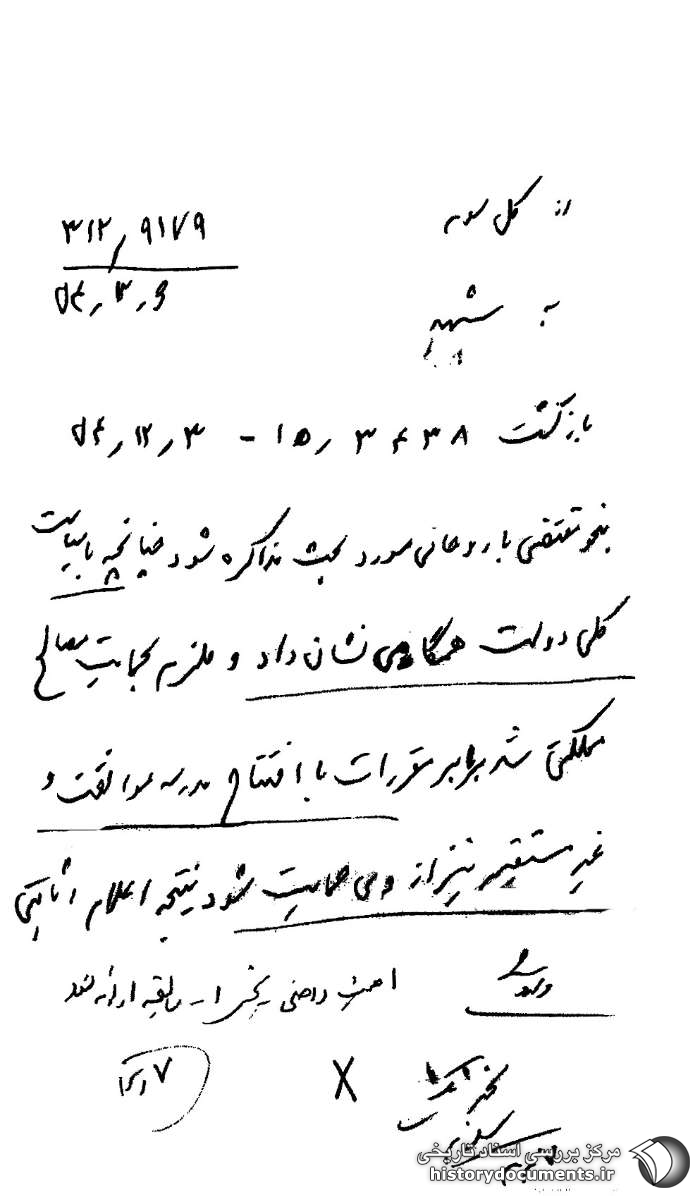 از کل سوم
۳۱۲/۹۱۷۹
۵۴٫۳٫۶
به
بازگشت ۳۶۳۸/۱۵ - ۵۴٫۱۲٫۳
بنحو مقتضی با روحانی مورد بحث مذاکره شود چنانچه با سیاست
کلی دولت همگامی نشان داد و ملزم بحمایت مصالح
مملکتی شد برابر مقررات با افتتاح مدرسه موافقت و
غیر مستقیم نیز از وی حمایت شود نتیجه اعلام
امنیت داخلی بخش با سابقه ارائه شود
X
مرکز بررسی اسناد تاریخی
historydocuments.ir